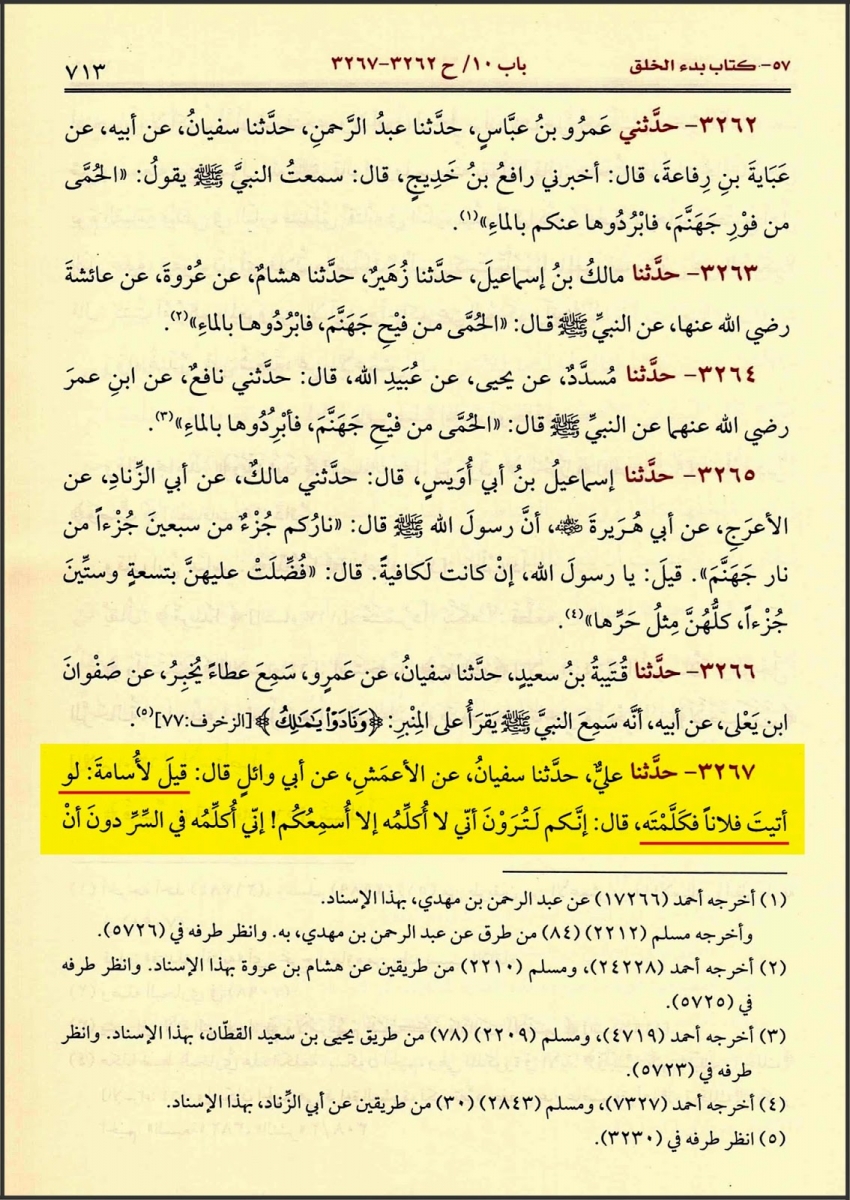 ٥٧- كتاب بدء الخلق باب ١٠/ ح ٣٢٦٢-٣٢٦٧ ٧١٣
٣٢٦٢- حدَّثني عَمرُو بنُ عبَّاسٍ، حدَّثنا عبدُ الرَّحمنِ، حدَّثنا سفيانُ، عن أبيه، عن
عَبَايةَ بنِ رِفاعةَ، قال: أخبرني رافعُ بنُ خَدِيجٍ، قال: سمعتُ النبيَّ ﷺ يقولُ: «الحُمَّى
من فورِ جَهَنَّمَ، فابْرُدُوها عنكم بالماءِ»(١).
٣٢٦٣- حدَّثنا مالكُ بنُ إسماعيلَ، حدَّثنا زُهَيرٌ، حدَّثنا هشامٌ، عن عُرْوةَ، عن عائشةَ
رضي الله عنها، عن النبيِّ ﷺ قال: «الحُمَّى من فَيْحِ جَهَنَّمَ، فابْرُدُوها بالماءِ»(٢).
٣٢٦٤- حدَّثنا مُسدَّدٌ، عن يحيى، عن عُبَيدِ الله، قال: حدَّثني نافعٌ، عن ابنِ عمرَ
رضي الله عنهما عن النبيِّ ﷺ قال: «الحُمَّى من فَيْحِ جَهَنَّمَ، فأبْرِدُوها بالماءِ»(٣).
٣٢٦٥- حدَّثنا إسماعيلُ بنُ أبي أُوَيسٍ، قال: حدَّثني مالكٌ، عن أبي الزِّنادِ، عن
الأعرَجِ، عن أبي هُرَيرةَ ﵁، أنَّ رسولَ الله ﷺ قال: «نارُكم جُزْءٌ من سبعينَ جُزْءاً من
نار جَهَنَّمَ». قيلَ: يا رسولَ الله، إنْ كانت لَكافيةً. قال: «فُضِّلَتْ عليهنَّ بتسعةٍ وستِّينَ
جُزْءاً، كلُّهُنَّ مِثلُ حَرِّها»(٤).
٣٢٦٦- حدَّثنا قُتَيبةُ بنُ سعيدٍ، حدَّثنا سفيانُ، عن عَمرٍو، سَمِعَ عطاءً يُخبِرُ، عن صَفْوانَ
ابن يَعْلى، عن أبيه، أنَّه سَمِعَ النبيَّ ﷺ يَقرَأُ على المِنْبرِ: ﴿وَنَادَوْاْ يَٰمَٰلِكُ﴾ [الزخرف:٧٧](٥).
٣٢٦٧- حدَّثنا عليٌّ، حدَّثنا سفيانُ، عن الأعمَشِ، عن أبي وائلٍ قال: قيلَ لأُسامةَ: لو
أتيتَ فلاناً فكَلَّمْتَه، قال: إنَّكم لَتُرَوْنَ أنّي لا أُكلِّمُه إلا أُسمِعُكُم! إنّي أُكلِّمُه في السِّرِّ دونَ أنْ
(١) أخرجه أحمد (١٧٢٦٦) عن عبد الرحمن بن مهدي، بهذا الإسناد.
وأخرجه مسلم (٢٢١٢) (٨٤) من طرق عن عبد الرحمن بن مهدي، به. وانظر طرفه في (٥٧٢٦).
(٢) أخرجه أحمد (٢٤٢٢٨)، ومسلم (٢٢١٠) من طريقين عن هشام بن عروة بهذا الإسناد. وانظر طرفه
في (٥٧٢٥).
(٣) أخرجه أحمد (٤٧١٩)، ومسلم (٢٢٠٩) (٧٨) من طريق يحيى بن سعيد القطَّان، بهذا الإسناد. وانظر
طرفه في (٥٧٢٣).
(٤) أخرجه أحمد (٧٣٢٧)، ومسلم (٢٨٤٣) (٣٠) من طريقين عن أبي الزِّناد، بهذا الإسناد.
(٥) انظر طرفه في (٣٢٣٠).